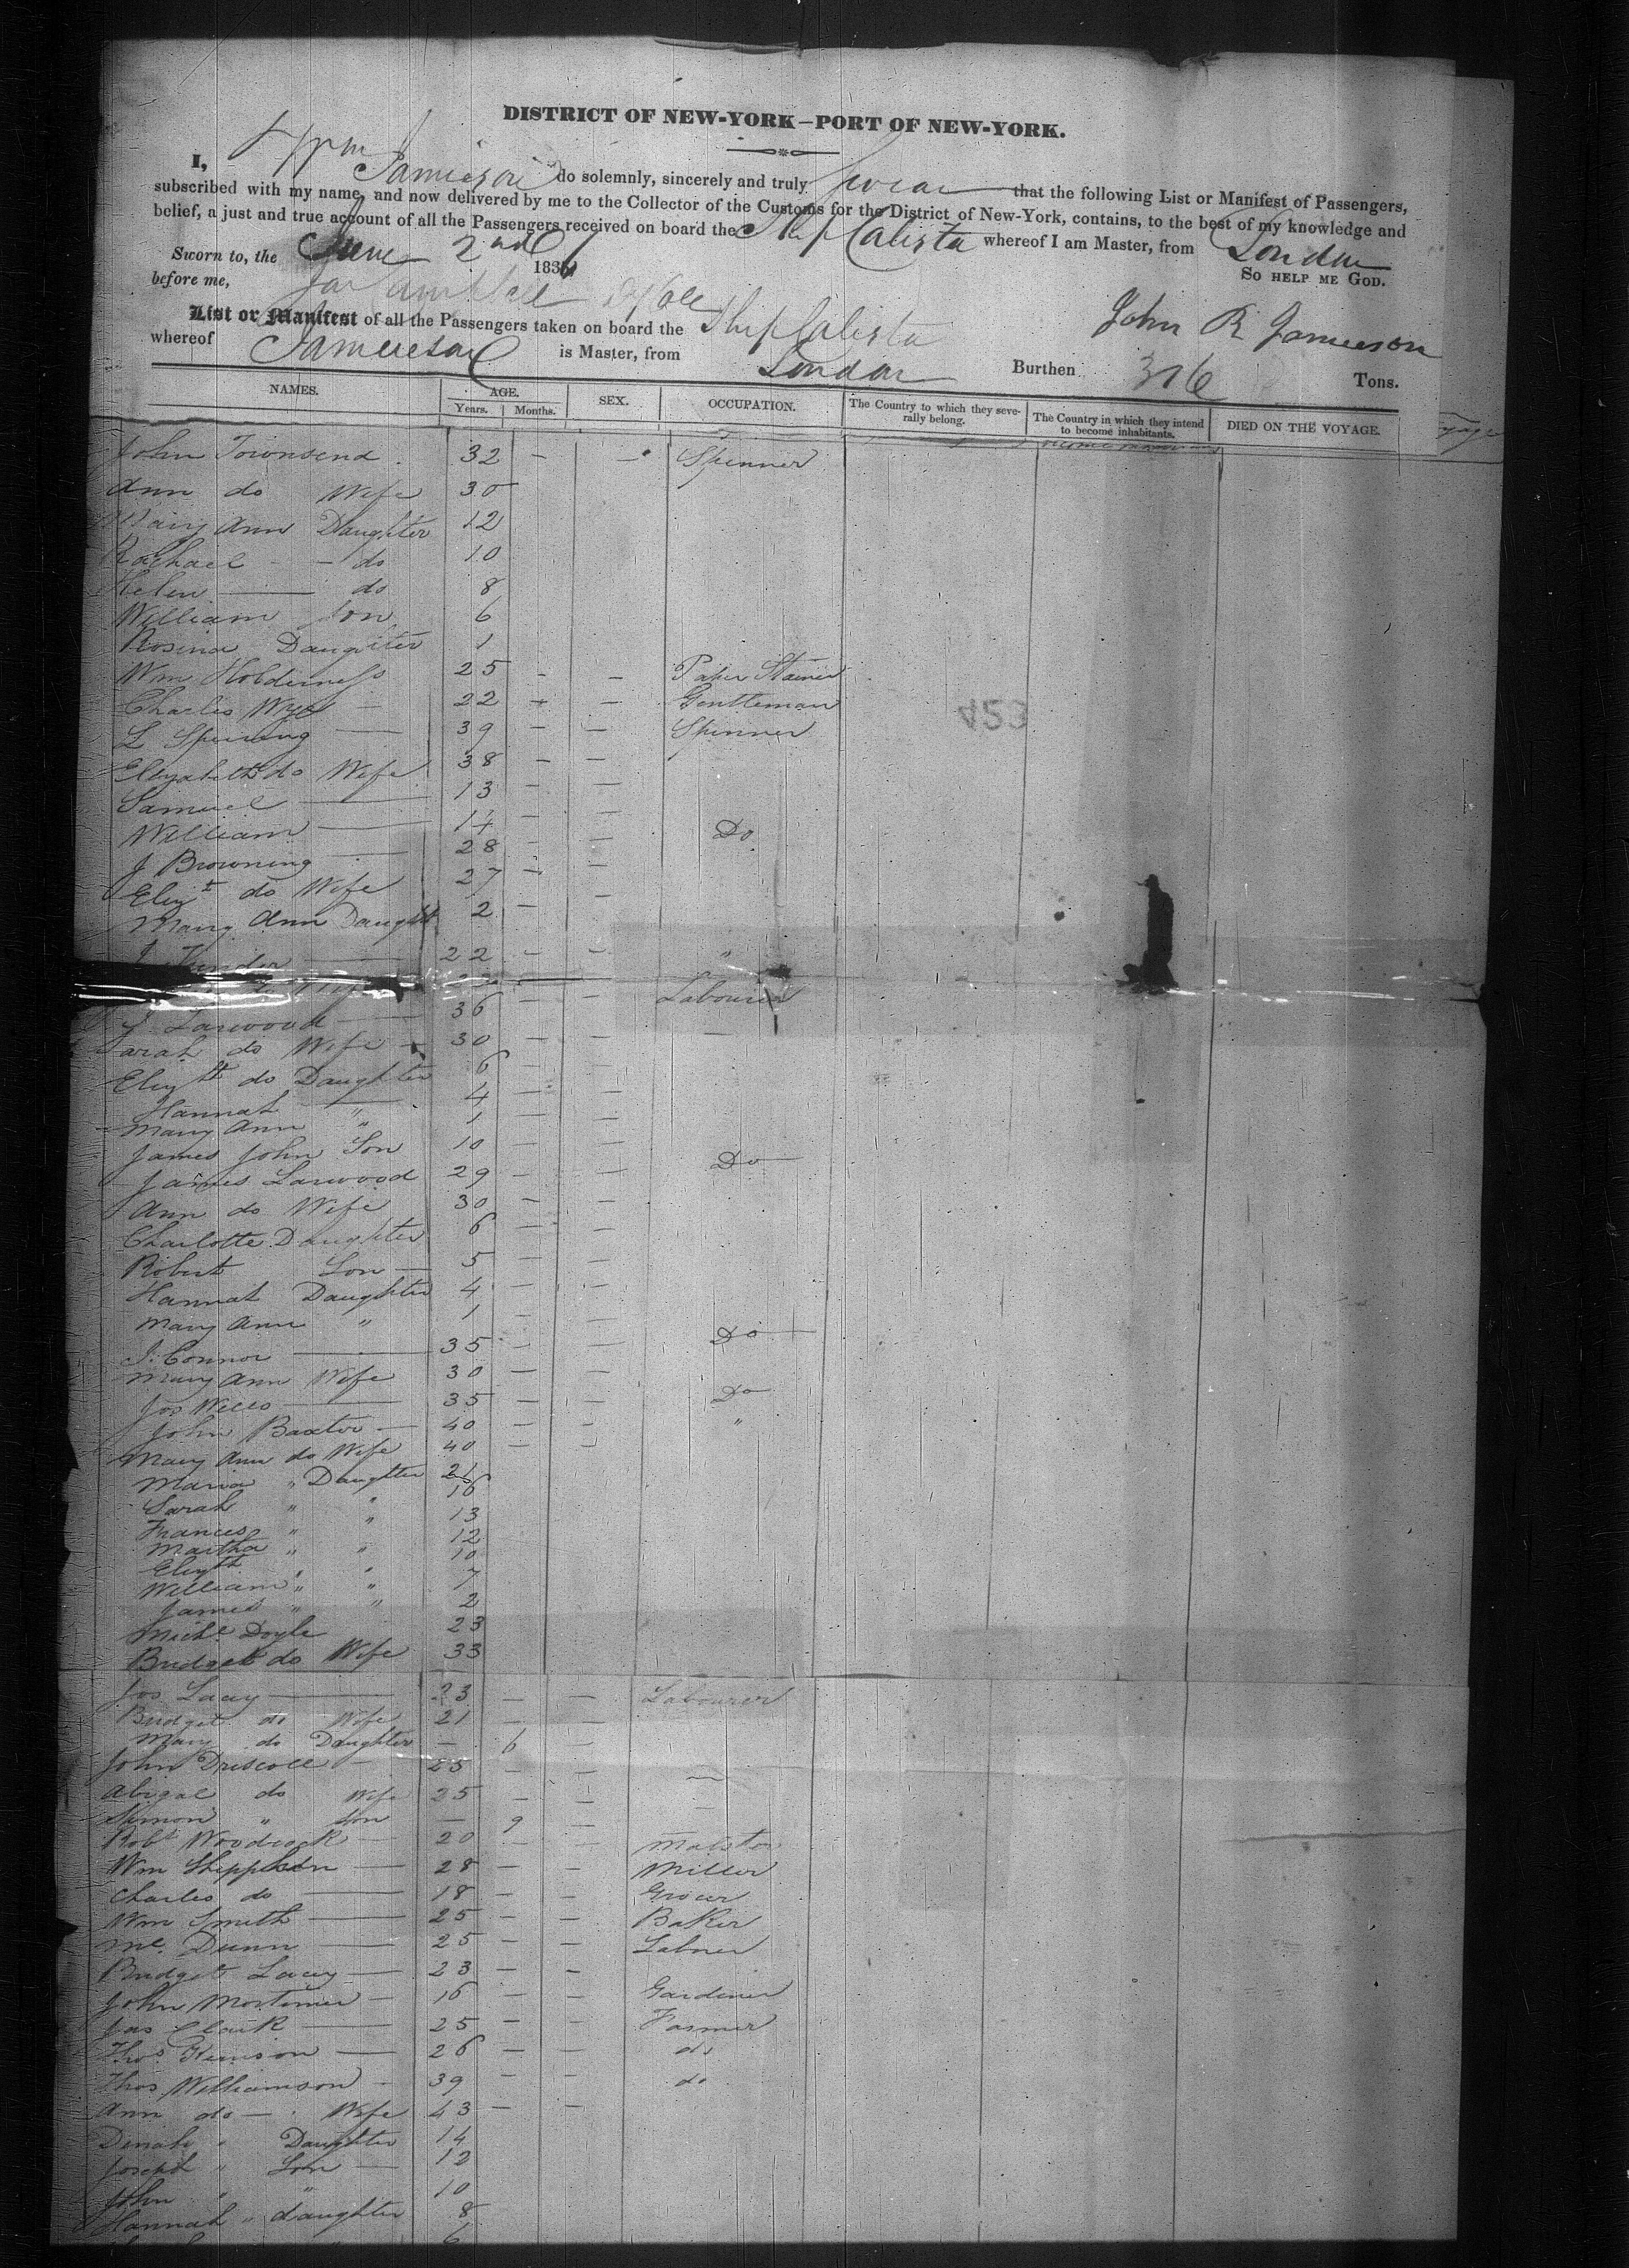 DISTRICT OF NEW-YORK—PORT OF NEW-YORK.
I, Jamieson do solemnly, sincerely and truly swear that the following List or Manifest of Passengers,
subscribed with my name, and now delivered by me to the Collector of the Customs for the District of New-York, contains, to the best of my knowledge and
belief, a just and true account of all the Passengers received on board the Ship Calista whereof I am Master, from London
Sworn to, the June 2nd 183
So HELP ME GOD.
before me,
John R Jamieson
List or Manifest of all the Passengers taken on board the Ship Calista
whereof Jamieson is Master, from London Burthen 316 Tons.
NAMES. AGE. SEX. OCCUPATION. The Country to which they severally belong. The Country in which they intend to become inhabitants. DIED ON THE VOYAGE.
Years. Months.
John Townsend 32 — — Spinner
Ann do Wife 30
Mary Ann Daughter 12
Rachael — — do 10
Helen — do 8
William Son 6
Rosina Daughter 1
Wm Holderness 25 — — Paper Stainer
Charles — 22 — — Gentleman
L — 39 — — Spinner
Elizabeth do Wife 38 — —
Samuel — 13 — —
William — 14 — —
J Browning — 28 — — Do
Eliz do Wife 27 — —
Mary Ann Daught 2 — —
J — 22 — — "
J. Larwood — 36 — — Labourer
Sarah do Wife — 30 — —
Elizth do Daughter 6 — —
Hannah — " 4 — —
Mary Ann " 1 — —
James John Son 10 — —
James Larwood 29 — — Do
Ann do Wife 30 — —
Charlotte Daughter 6 — —
Robert Son — 5 — —
Hannah Daughter 4 — —
Mary Ann " 1 — —
J. Connor — 35 — — Do
Mary Ann Wife 30 — —
Jos Wells — 35 — — Do
John Baxter — 40 — — "
Mary Ann do Wife 40 — —
Maria " Daughter 21
Sarah " " 16
Frances " " 13
Martha " " 12
Elizth " " 10
William " " 7
James " " 2
Michl Doyle 23
Bridget do Wife 33
Jos Lacy — 23 — — Labourer
Bridget do Wife 21 — —
Mary do Daughter — 6 —
John Driscoll — 25 — — —
Abigal do Wife 25 — — —
Simon " Son — 9 —
Robt Woodcock — 20 — — Malster
Wm — 28 — — Miller
Charles do — 18 — — Grocer
Wm Smith — 25 — — Baker
Mc. Dunn — 25 — — Labner
Bridget Lacey — 23 — —
John Mortimer — 16 — — Gardiner
Jas Clark — 25 — — Farmer
Thos — 26 — — do
Thos Williamson — 39 — — do
Ann do — Wife 43 — —
Dinah " Daughter 14
Joseph " Son — 12
John " " 10
Hannah " daughter 8
6